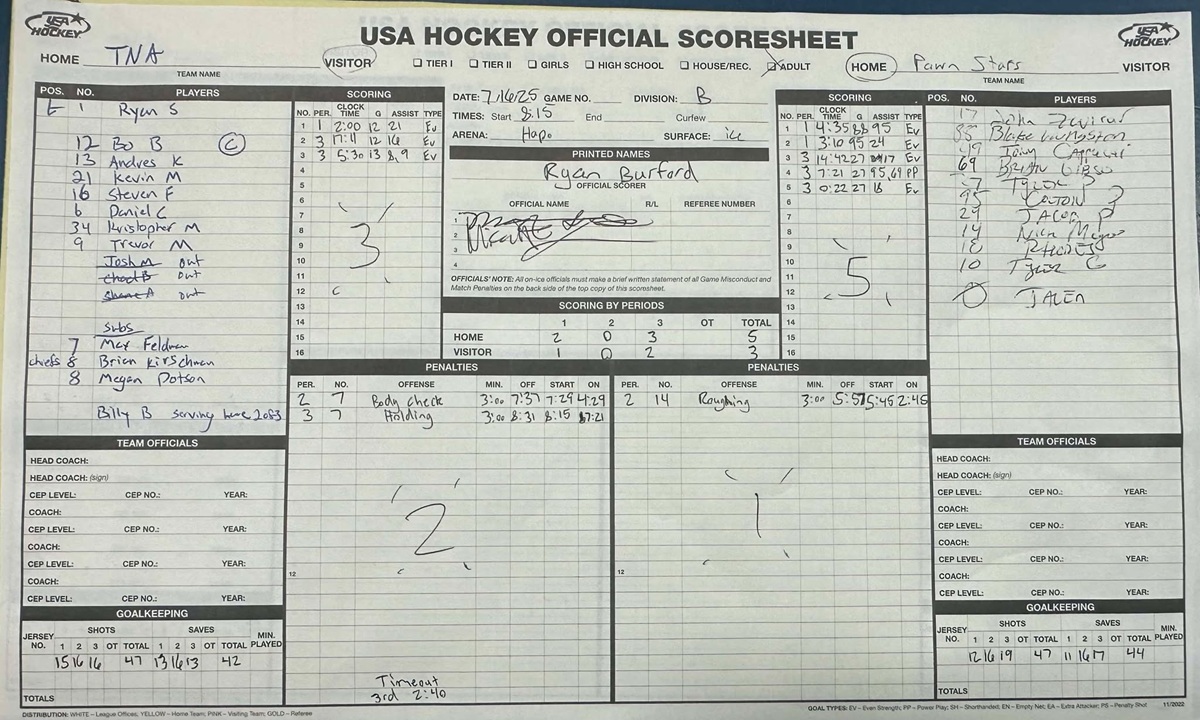 USA HOCKEY
USA HOCKEY OFFICIAL SCORESHEET
USA HOCKEY
HOME TNA VISITOR TIER I TIER II GIRLS HIGH SCHOOL HOUSE/REC. ADULT HOME Pawn Stars VISITOR
TEAM NAME
TEAM NAME
POS. NO. PLAYERS
G 1 Ryan S
12 Bo B C
13 Andres K
21 Kevin M
16 Steven F
6 Daniel C
34 Kristopher M
9 Trevor M
Josh M out
Chad B out
Shane A out
Subs
7 Max Feldman
chiefs 8 Brian Kirschman
8 Megan Dotson
Billy B serving
TEAM OFFICIALS
HEAD COACH:
HEAD COACH: (sign)
CEP LEVEL: CEP NO.: YEAR:
COACH:
CEP LEVEL: CEP NO.: YEAR:
COACH:
CEP LEVEL: CEP NO.: YEAR:
COACH:
CEP LEVEL: CEP NO.: YEAR:
GOALKEEPING
JERSEY NO. SHOTS SAVES MIN. PLAYED
1 2 3 OT TOTAL 1 2 3 OT TOTAL
15 16 16 47 13 16 13 42
TOTALS
SCORING
NO. PER. CLOCK TIME G ASSIST TYPE
1 1 2:00 12 21 Ev
2 3 17:11 12 16 Ev
3 3 5:30 13 8,9 Ev
4
5
6
7
8
9
10
11
12
13
14
15
16
3
DATE: 7/16/25 GAME NO. DIVISION: B
TIMES: Start 8:15 End Curfew
ARENA: Hapo SURFACE: ice
PRINTED NAMES
Ryan Burford
OFFICIAL SCORER
OFFICIAL NAME R/L REFEREE NUMBER
1
2
3
4
OFFICIALS' NOTE: All on-ice officials must make a brief written statement of all Game Misconduct and
Match Penalties on the back side of the top copy of this scoresheet.
SCORING BY PERIODS
1 2 3 OT TOTAL
HOME 2 0 3 5
VISITOR 1 0 2 3
SCORING
NO. PER. CLOCK TIME G ASSIST TYPE
1 1 4:35 88 95 Ev
2 1 3:10 95 24 Ev
3 3 14:42 27 17 Ev
4 3 7:21 27 95,69 PP
5 3 0:22 27 18 Ev
6
7
8
9
10
11
12
13
14
15
16
5
POS. NO. PLAYERS
17 John
Blake Livingston
49 Tony
69 Brian Gibso
Tyler P
95 Colton
29 Jacob P
14 Nick
18
10 Tyler G
0 Jalen
PENALTIES
PER. NO. OFFENSE MIN. OFF START ON
2 7 Body Check 3:00 7:37 7:29 4:29
3 7 Holding 3:00 8:31 8:15 7:21
2
12
Timeout
3rd 2:40
PENALTIES
PER. NO. OFFENSE MIN. OFF START ON
2 14 Roughing 3:00 5:57 5:45 2:45
1
12
TEAM OFFICIALS
HEAD COACH:
HEAD COACH: (sign)
CEP LEVEL: CEP NO.: YEAR:
COACH:
CEP LEVEL: CEP NO.: YEAR:
COACH:
CEP LEVEL: CEP NO.: YEAR:
COACH:
CEP LEVEL: CEP NO.: YEAR:
GOALKEEPING
JERSEY NO. SHOTS SAVES MIN. PLAYED
1 2 3 OT TOTAL 1 2 3 OT TOTAL
12 16 19 47 11 16 17 44
TOTALS
DISTRIBUTION: WHITE – League Offices, YELLOW – Home Team, PINK – Visiting Team; GOLD – Referee
GOAL TYPES: EV – Even Strength; PP – Power Play; SH – Shorthanded; EN – Empty Net; EA – Extra Attacker; PS – Penalty Shot 11/2022